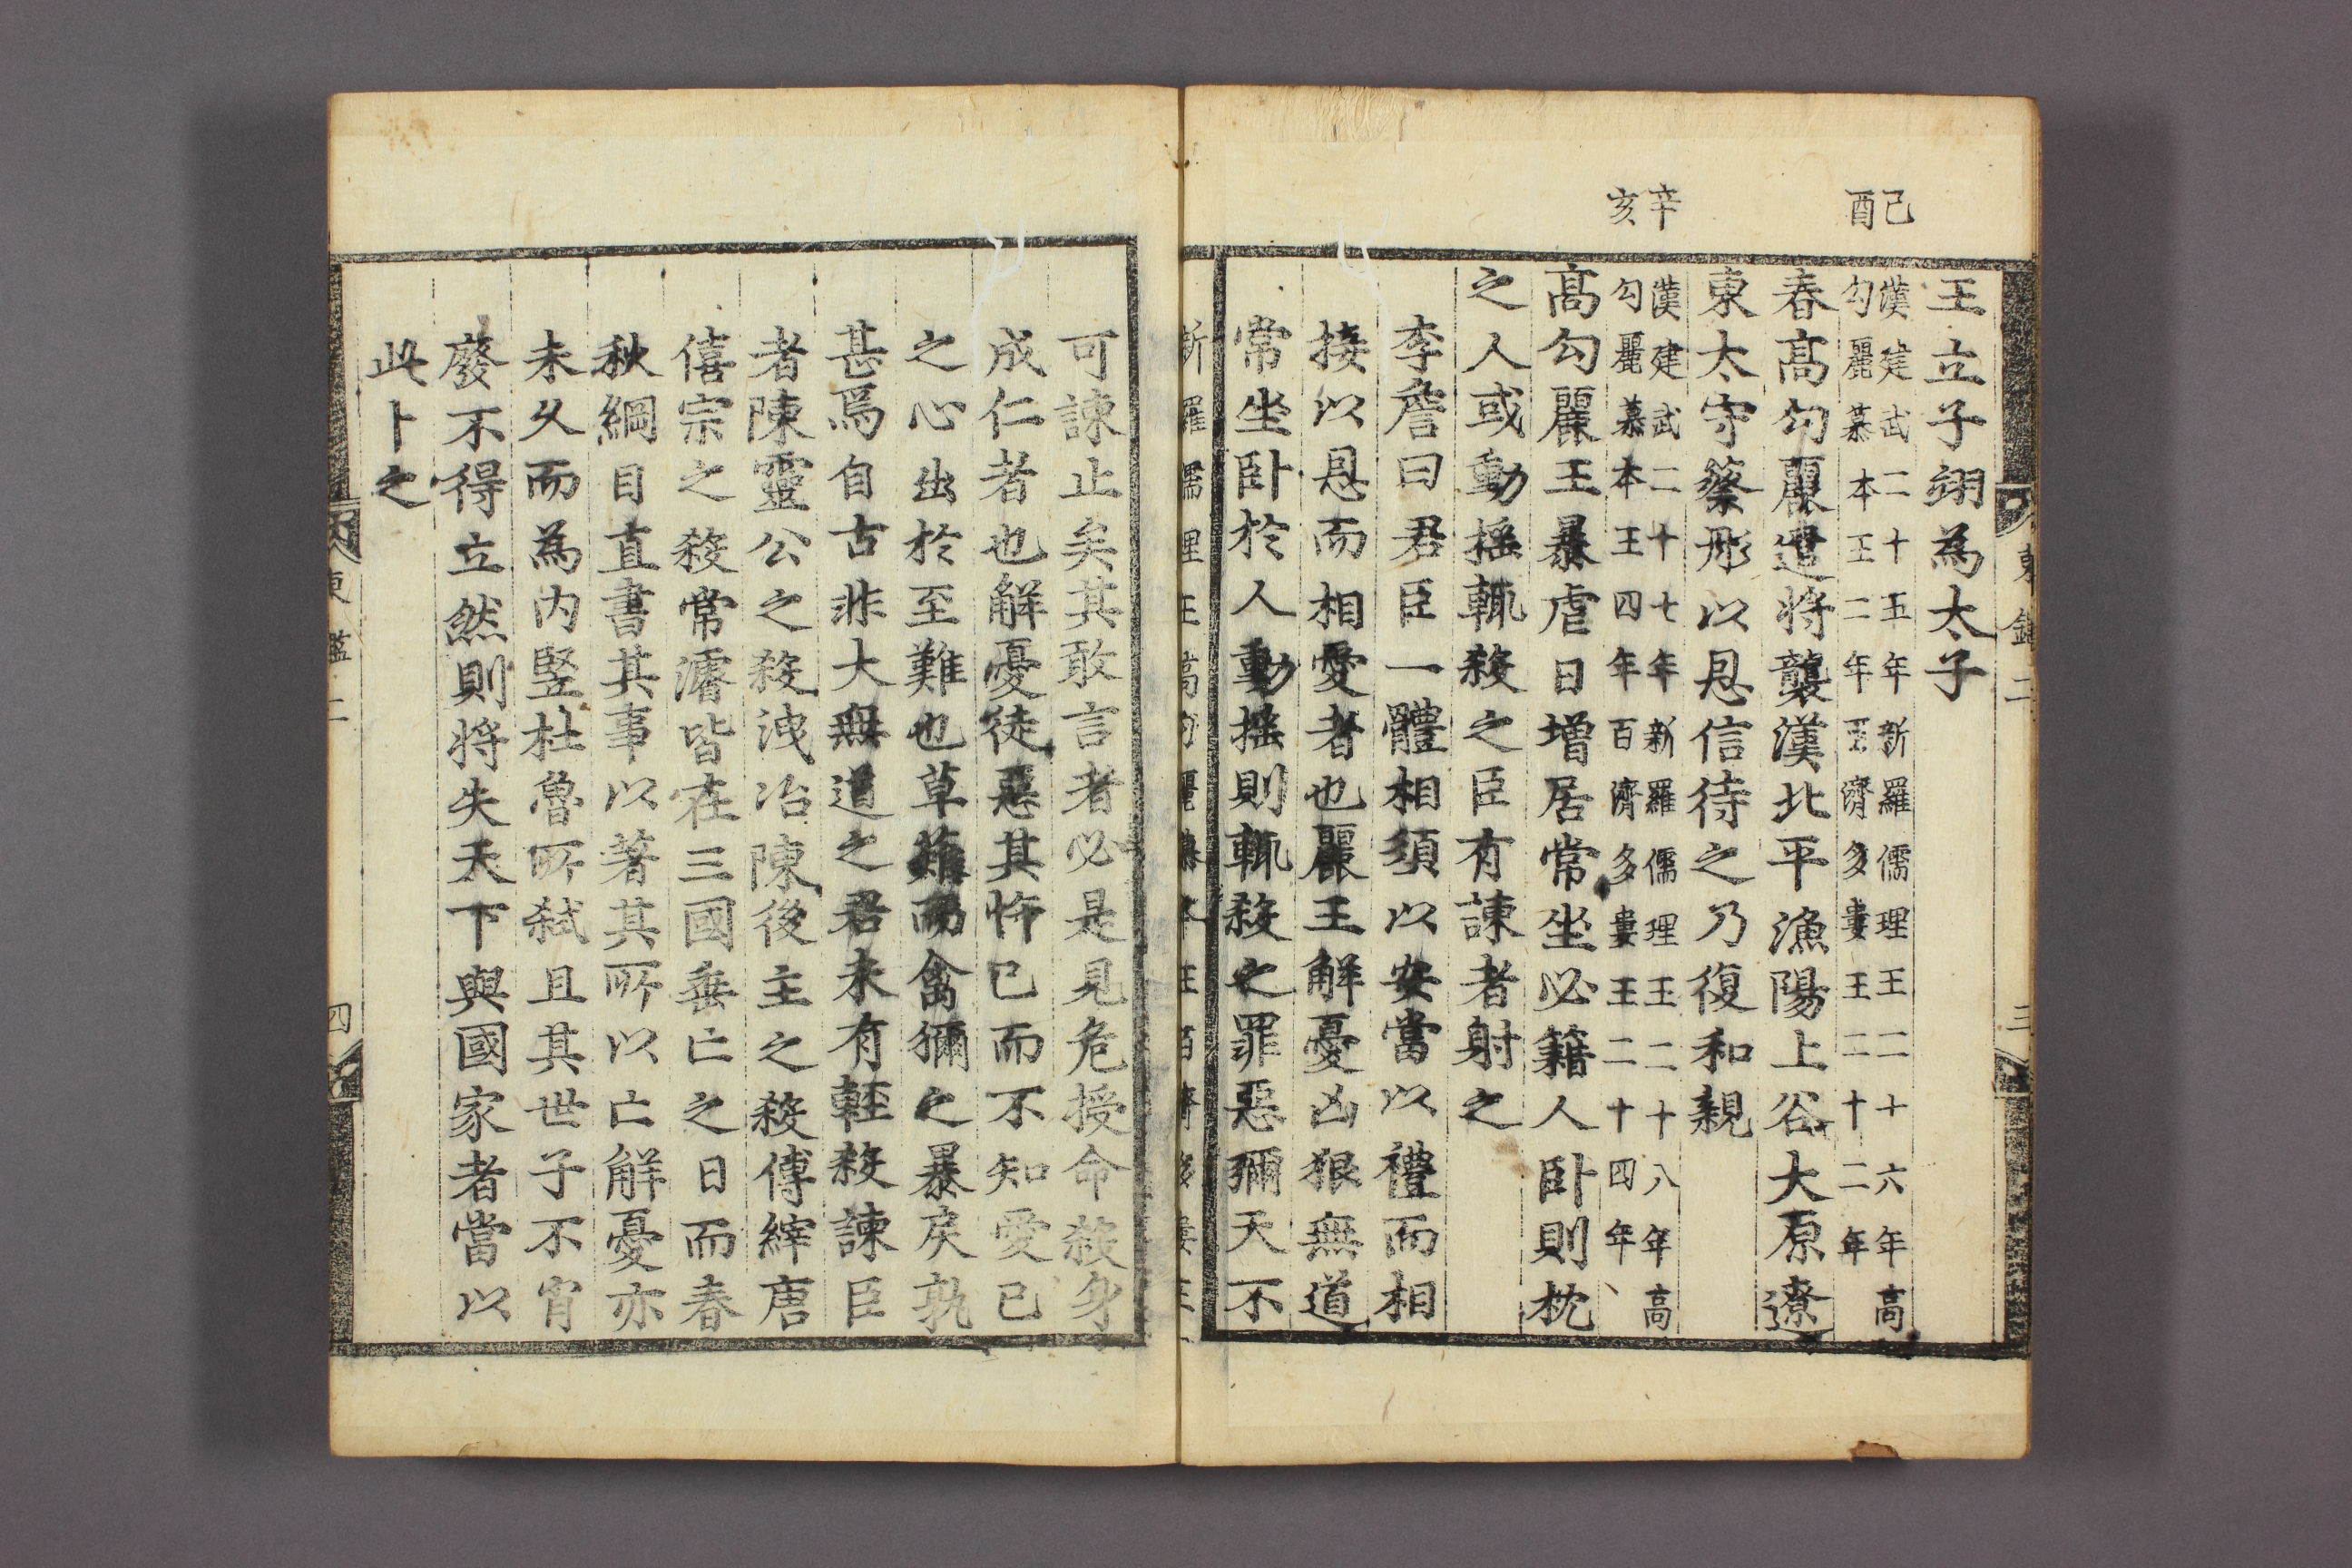 己酉
辛亥
王立子翊為太子
漢建武二十五年新羅儒理王二十六年高
勾麗慕本王二年百濟多婁王二十二年
春高勾麗遣将襲漢北平漁陽上谷大原遼
東太守蔡彤以恩信待之乃復和親
漢建武二十七年新羅儒理王二十八年高
勾麗慕本王四年百濟多婁王二十四年
高勾麗王暴虐日増居常坐必籍人卧則枕
之人或動揺輒殺之臣有諫者射之
李詹曰君臣一體相須以安當以禮而相
接以恩而相愛者也麗王解憂凶狠無道
常坐卧於人動揺則輒殺之罪惡彌天不
東鑑二
三
可諫止矣其敢言者必是見危授命殺身
成仁者也解憂徒惡其忤已而不知愛已
之心出於至難也草薙而禽獮之暴戾孰
甚焉自古非大無道之君未有輕殺諫臣
者陳靈公之殺洩冶陳後主之殺傅縡唐
僖宗之殺常濬皆在三國垂亡之日而春
秋綱目直書其事以著其所以亡解憂亦
未久而為内竪杜魯所弑且其世子不肖
廢不得立然則将失天下與國家者當以
此卜之
東鑑二
四